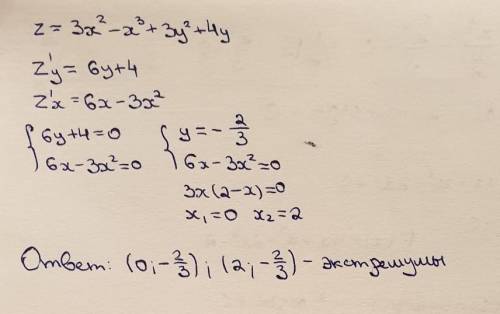 z = 3x² - x³ + 3y² + 4y
z'y = 6y + 4
z'x = 6x - 3x²
{ 6y + 4 = 0 { y = - 2/3
6x - 3x² = 0 6x - 3x² = 0
3x (2 - x) = 0
x₁ = 0 x₂ = 2
Ответ: (0; - 2/3); (2; - 2/3) - экстремумы